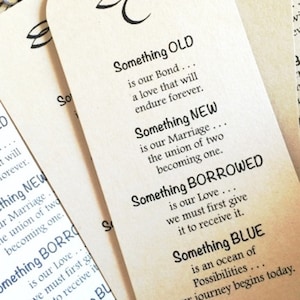 Something OLD
is our Bond . . .
a love that will
endure forever.
Something NEW
is our Marriage . . .
the union of two
becoming one.
Something BORROWED
is our Love . . .
we must first give
it to receive it.
Something BLUE
is an ocean of
Possibilities . . .
our journey begins today.
Something NEW
is our Marriage
the union of two
becoming one.
Something BORRO
is our Love . . .
we must first g
it to receive
Something BLUE
is an ocean
Possibilities